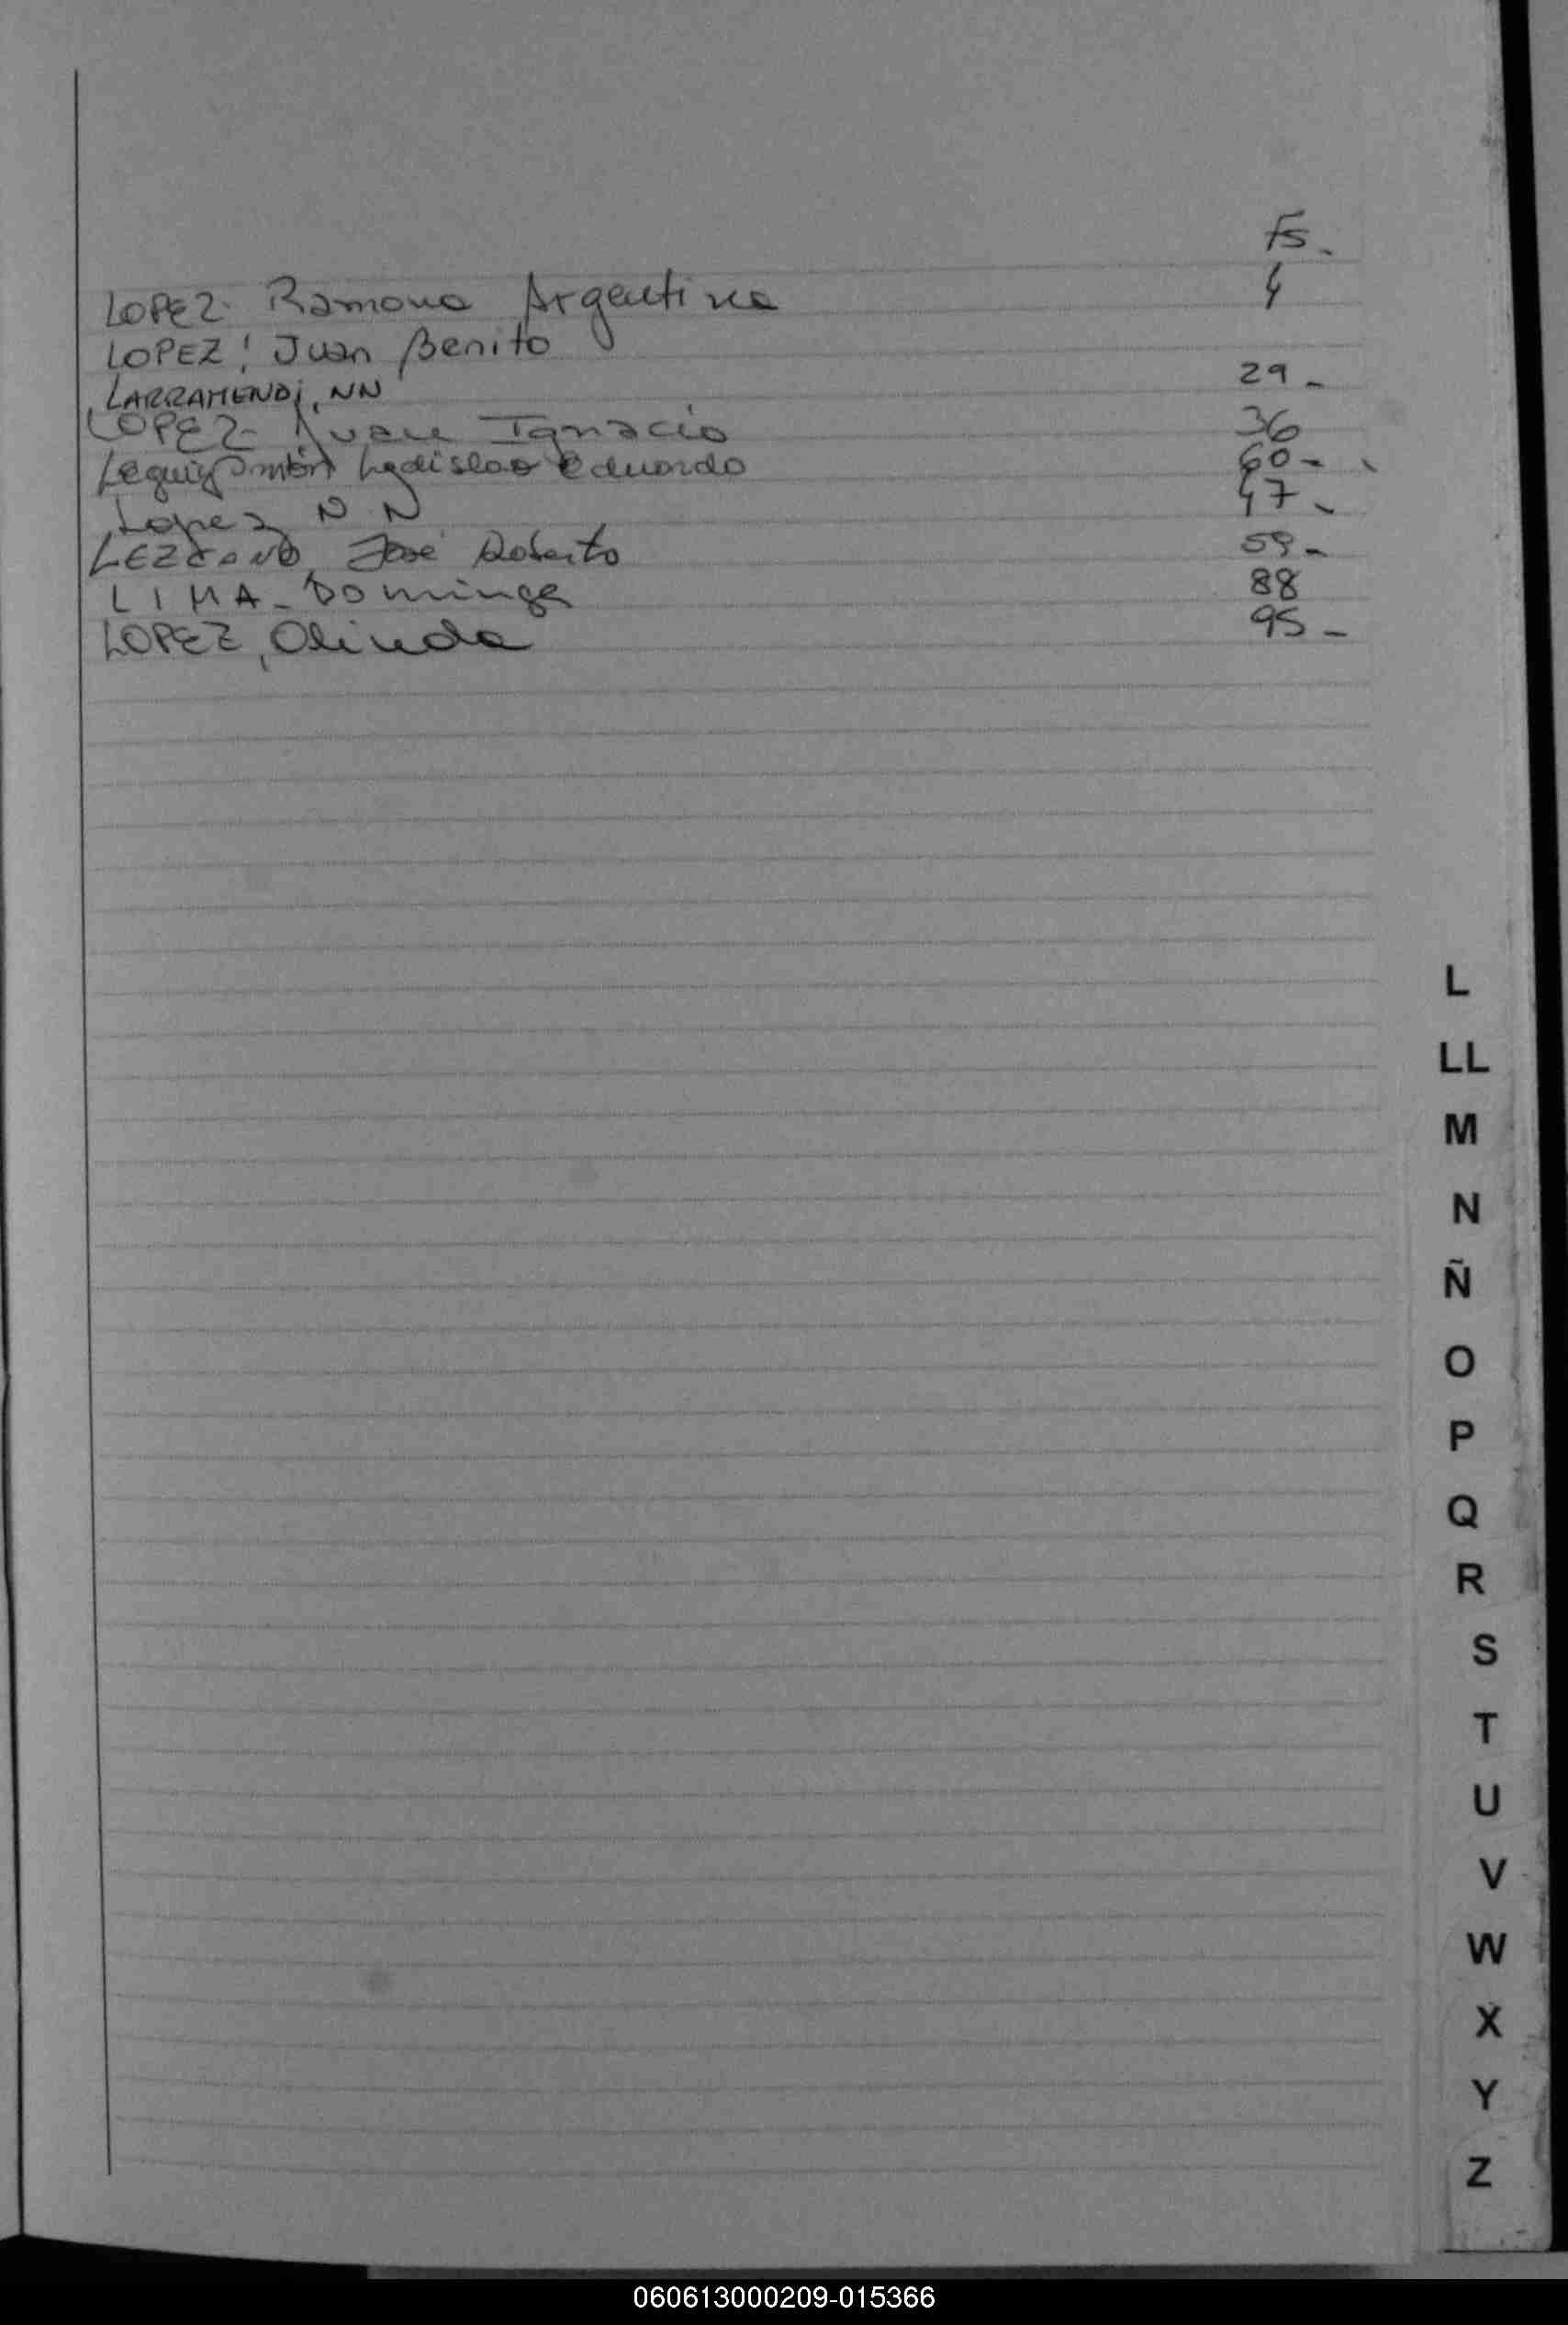 Fs.
LOPEZ. Ramona Argentina 4
LOPEZ, Juan Benito
LARRAMENDI, NN 29-
LOPEZ- Juan Ignacio 36
Ladislao Eduardo 60-
Lopez N N 47-
LEZCANO, José Roberto 59-
LIMA- Dominga 88
LOPEZ, Olinda 95-
L
LL
M
N
Ñ
O
P
Q
R
S
T
U
V
W
X
Y
Z
060613000209-015366